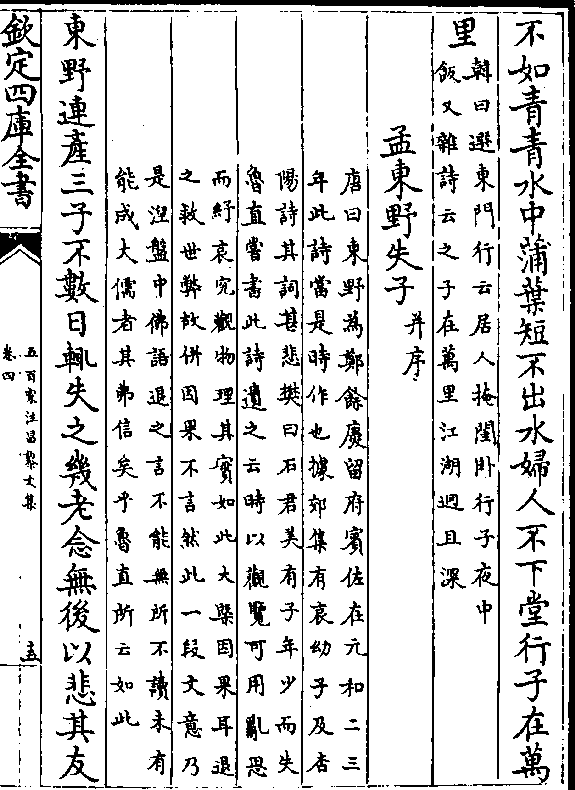 不如青青水中蒲葉短不出水婦人不下堂行子在萬
里
韓曰選東門行云居人掩閨卧行子夜中
飯又雜詩云之子在萬里江湖迥且深
孟東野失子并序
唐曰東野為鄭餘慶留府賓佐在元和二三
年此詩當是時作也據郊集有哀幼子及杏
陽詩其詞甚悲樊曰石君美有子年少而失
魯直嘗書此詩遺之云時以觀覽可用亂思
而紓哀究觀物理其實如此大槩因果耳退
之救世弊故併因果不言然此一段文意乃
是涅盤中佛語退之言不能無所不讀未有
能成大儒者其弗信矣乎魯直所云如此
東野連產三子不數日輒失之幾老念無後以悲其友
欽定四庫全書
五百家注昌黎文集
卷四
五